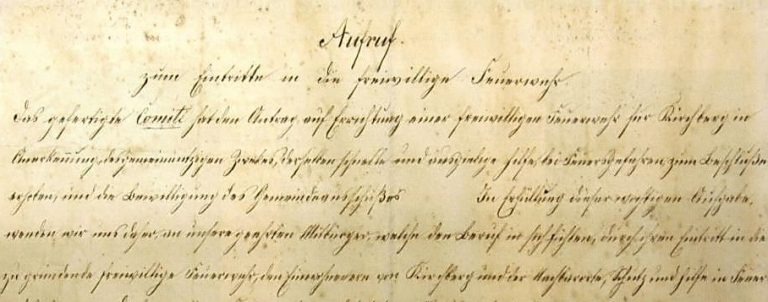 Aufruf.
zum Eintritte in die freiwillige Feuerwehr.
Das gefertigte Comité hat den Antrag auf Errichtung einer freiwilligen Feuerwehr für Kirchberg in
Anerkennung des gemeinnützigen Zweckes, derselben schnelle und ausgiebige Hilfe bei Feuersgefahren zum Beschluße
erhoben, und die Bewilligung des Gemeindeausschußes In Erfüllung dieser wichtigen Aufgabe,
wenden wir uns daher, an unsere geehrten Mitbürger, welche den Beruf in sich fühlen, durch ihren Eintritt in die
zu gründende freiwillige Feuerwehr, den Einwohnern von Kirchberg und der Nachbarorte, Schutz und Hilfe in Feuer